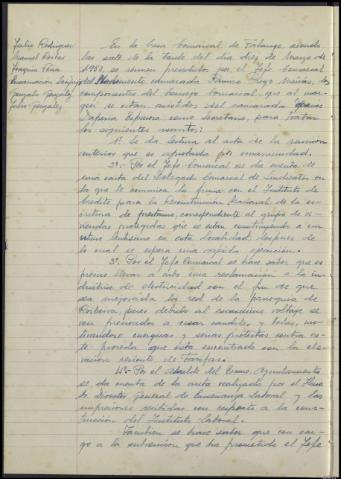 Julio Rodriguez
Manuel Portas
Joaquin Pena
Gonzalo Gonzalez
Julio Gonzalez
En la Casa Comarcal de Falange siendo
las siete de la tarde del dia diez de Marzo de
1953, se reunen presididos por el Jefe Comarcal
camarada Ramiro
componentes del Consejo Comarcal que al mar-
gen se citan, asistidos del camarada
como Secretario, para tratar
los siguientes asuntos:
1º Se da lectura al acta de la reunion
anterior que es aprobada por unanimidad.
2º Por el Jefe Comarcal se da cuenta de
una carta del Delegado Comarcal de Sindicatos en
la que le comunica la firma con el Instituto de
Credito para la Reconstrucción Nacional de la es-
critura de prestamo, correspondiente al grupo de vi-
viendas protegidas que se estan construyendo a
en esta localidad, despues de
lo cual se espera una rapida operacion.
3º Por el Jefe Comarcal se hace saber que es
preciso llevar a cabo una reclamacion a la in-
dustria de electricidad con el fin de que
sea mejorada la red de la parroquia de
pues debido al escasisimo voltage se
ven precisados a usar candiles y velas, mo-
tivandose censuras y serias protestas contra es-
te proceder que esta acentuado con la ele-
vacion reciente de tarifas.
4º Por el Alcalde del Excmo. Ayuntamiento
se da cuenta de la visita realizada por el Ilmo
Sr Director General de Enseñanza Laboral y las
impresiones recibidas con respecto a la cons-
truccion del Instituto Laboral.
Tambien se hace saber que con car-
go a la subvencion que ha prometido el Jefe